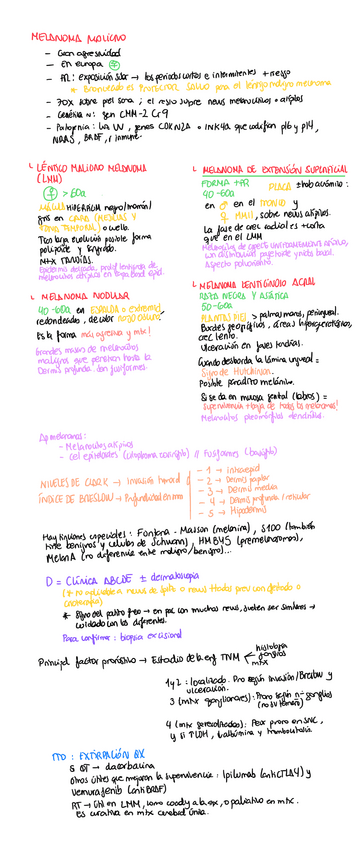 MELANOMA MALIGNO
- Gran agresividad
- En europa ♀
- FR: exposición solar → los periodos cortos e intermitentes + riesgo
* Bronceado es PROTECTOR SALVO para el léntigo maligno melanoma
- 70% sobre piel sana ; el resto sobre nevus melanocíticos o atípicos
- Genética nº: gen CMM-2 Cr9
- Patogenia: luz UV, genes CDKN2A o INK4A que codifican p16 y p14,
NRAS, BRAF, r inmune.
LÉNTICO MALIGNO MELANOMA
(LMM)
♀ > 60a
MÁCULA HIPERPIGM negro/marrón/
gris en CARA (MEJILLAS Y
ZONA TEMPORAL) o cuello.
Tras larga evolución posible forma
polipoide y sangrado.
MTX TARDÍAS.
Epidermis delgada, prolif lentiginosa de
melanocitos atípicos en capa basal epid.
MELANOMA DE EXTENSIÓN SUPERFICIAL
FORMA +FR PLACA +hab asintomá :
40-60a
en ♂ en el TRONCO y
♀ MMII, sobre nevus atípicos.
La fase de crec radial es + corta
que en el LMM
Melanocitos de aspecto uniformemente atípico,
con distribución pagetoide y nidos basal.
Aspecto policíclico.
MELANOMA NODULAR
40-60a en ESPALDA o extremid
redondeadas, de color negro oscuro/
Es la forma más agresiva y mtx!
Grandes masas de melanocitos
malignos que penetran hasta la
Dermis profunda. Son fusiformes.
MELANOMA LENTIGINOSO ACRAL
RAZA NEGRA Y ASIÁTICA
50-60a
PLANTAS PIES > palmas manos, periungueal.
Bordes geográficos, áreas hipopigmentadas,
crec lento.
Ulceración en fases tardías.
Cuando desborda la lámina ungueal =
Signo de Hutchinson.
Posible panadizo melánico.
Si se da en mucosa genital (labios) =
Supervivencia + baja de todos los melanomas!
Melanocitos pleomórficos dendríticos.
Ap melanomas:
- Melanocitos atípicos
- Cel epitelioides (citoplasma cariopto) // Fusiformes
NIVELES DE CLARK → invasión tumoral
ÍNDICE DE BRESLOW → Profundidad en mm
- 1 → intraepid
- 2 → Dermis papilar
- 3 → Dermis media
- 4 → Dermis profunda / reticular
- 5 → Hipodermis
Hay tinciones especiales: Fontana-Masson (melanina), S100 (también
tiñe benignos y células de Schwann), HMB45 (premelanosomas),
MelanA (no diferencia entre maligno/benigno)...
D = CLÍNICA ABCDE ± dermatoscopia
(* no aplicable a nevus de spitz o nevus tratados previ con ác tópico o
crioterapia)
* Signo del patito feo → en pac con muchos nevus, suelen ser similares →
cuidado con los diferentes.
Para confirmar : biopsia escisional
Principal factor pronóstico → Estadio de la enf TNM
histología
ganglios
mtx
1 y 2 : localizado. Pro según invasión/Breslow y
ulceración.
3 (mtx ganglionares): Prono según nº ganglios
(no su tamaño)
4 (mtx generalizadas): Peor prono en SNC,
y si ↑LDH, ↓albúmina y trombocitosis
TTO : EXTIRPACIÓN QX
Si QT → dacarbacina
Otros útiles que mejoran la supervivencia : Ipilumab (antiCTLA4) y
Vemurafenib (antiBRAF)
RT → útil en LMM, como coady a la qx, o paliativo en mtx.
Es curativa en mtx cerebral única.